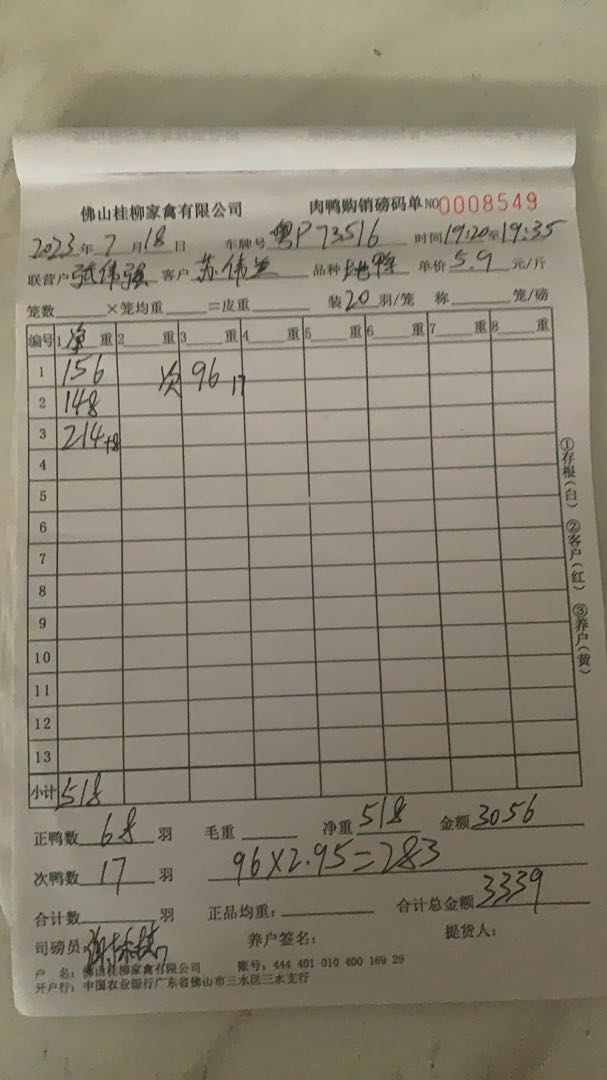 佛山桂柳家禽有限公司 肉鸭购销磅码单 NO 0008549
2023年7月18日 车牌号 粤P73516 时间19:20至19:35
联营户 张伟强 客户 苏伟 品种 单价 5.9 元/斤
笼数 ×笼均重 =皮重 装20羽/笼 称 笼/磅
编号 1净重 2 重 3 重 4 重 5 重 6 重 7 重 8 重
1 156 次 96 17
2 148
3 214 +8
4
5
6
7
8
9
10
11
12
13
小计 518
①存根(白) ②客户(红) ③养户(黄)
正鸭数 68 羽 毛重 净重 518 金额 3056
次鸭数 17 羽 96×2.95=283
合计数 羽 正品均重: 合计总金额 3339
司磅员: 养户签名: 提货人:
户 名: 佛山桂柳家禽有限公司 账号: 444 401 010 400 169 29
开户行: 中国农业银行广东省佛山市三水区三水支行